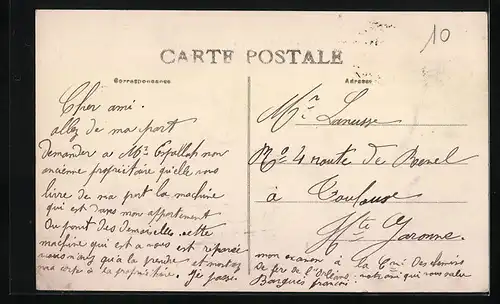 10
CARTE POSTALE
Correspondance
Adresse
Cher ami.
allez de ma part
demander a Mme Espallah mon
ancienne propriétaire qu'elle vous
livre de ma part la machine
qui est dans mon appartement
Du pont des Demoiselles. cette
machine qui est a vous est réparée
vous n'avez qu'a la prendre et montrez
ma carte à la propriétaire.
Mr Lanusse
No 4 route de Revel
à Toulouse
Hte Garonne.
à la Cnie des chemins
de fer de l'Orléans, qui vous salue
Barguès françois.